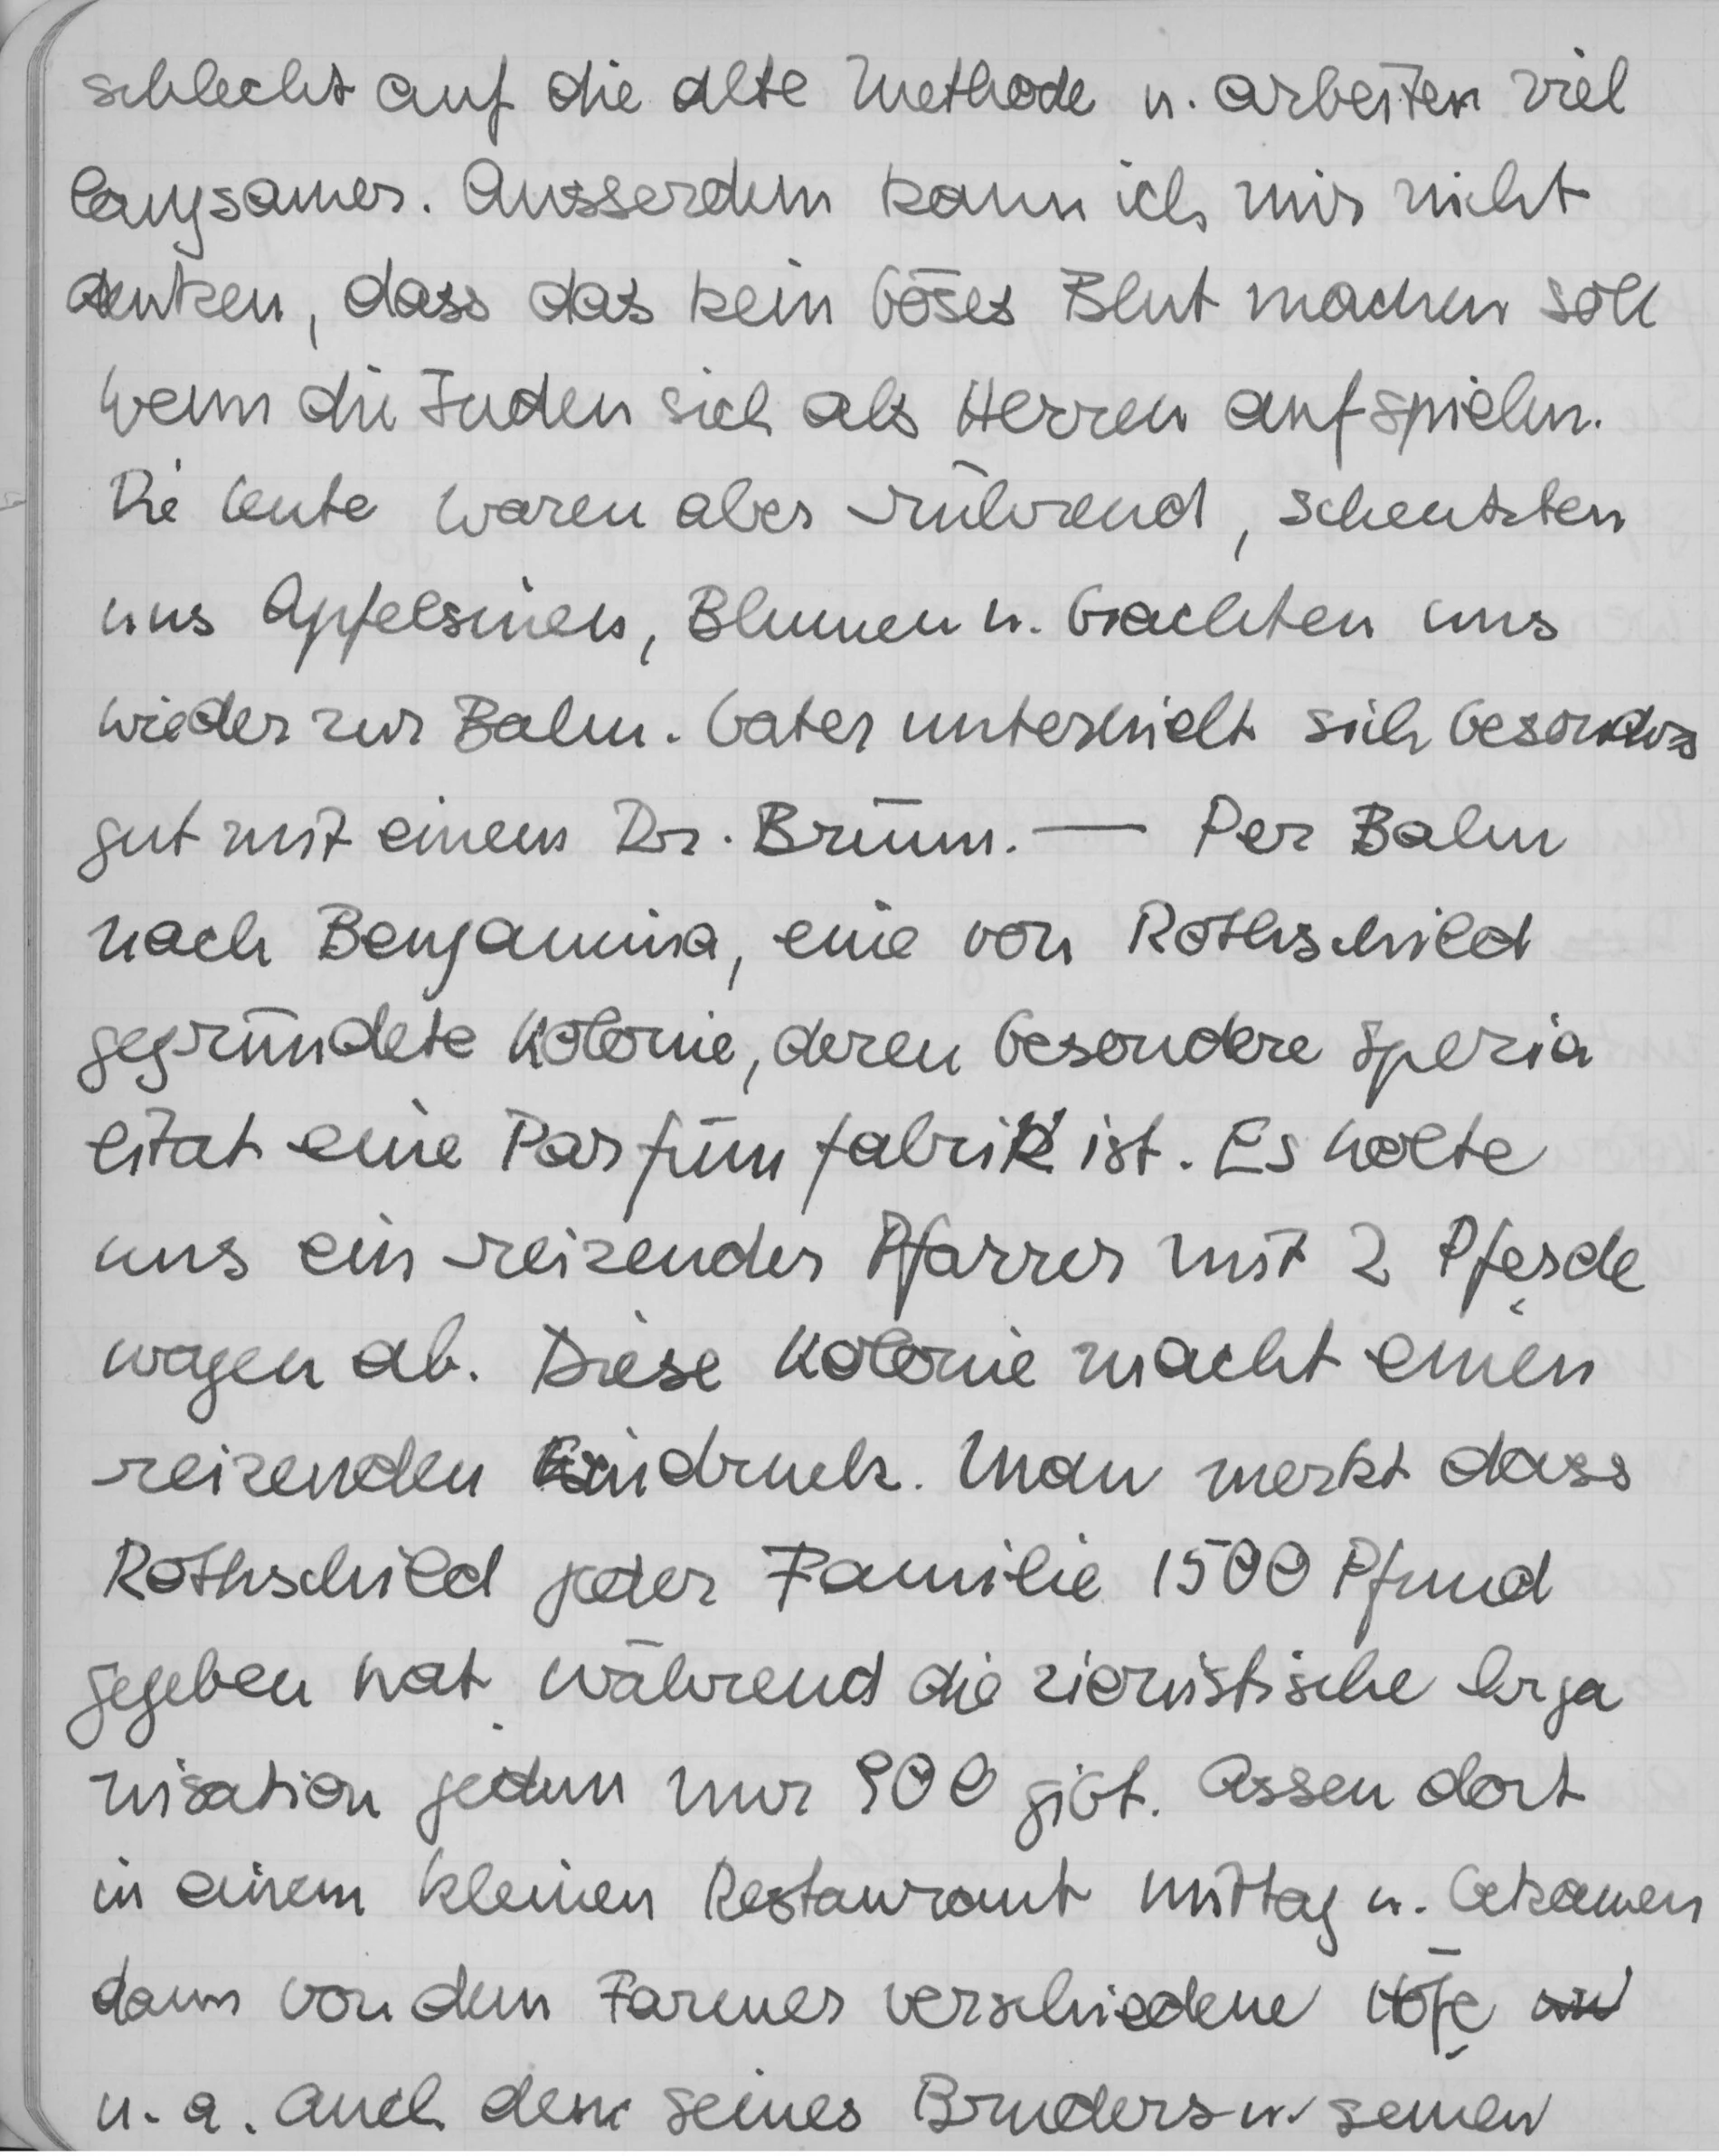 schlecht auf die alte Methode u. arbeiten viel
langsamer. Ausserdem kann ich mir nicht
denken, dass das kein böses Blut machen soll
wenn die Juden sich als Herren aufspielen.
Die Leute waren aber rührend, schenkten
uns Apfelsinen, Blumen u. brachten uns
wieder zur Bahn. Vater unterhielt sich besonders
gut mit einem Dr. Brünn. — Per Bahn
nach Benjamina, eine von Rothschild
gegründete Kolonie, deren besondere Spezia
lität eine Parfümfabrik ist. Es holte
uns ein reizender Pfarrer mit 2 Pferde
wagen ab. Diese Kolonie macht einen
reizenden Eindruck. Man merkt dass
Rothschild jeder Familie 1500 Pfund
gegeben hat während die zionistische Orga
nisation jedem nur 900 gibt. Assen dort
in einem kleinen Restaurant mittag u. bekamen
dann von dem Farmer verschiedene Höfe
u. a. auch den seines Bruders u. seinen